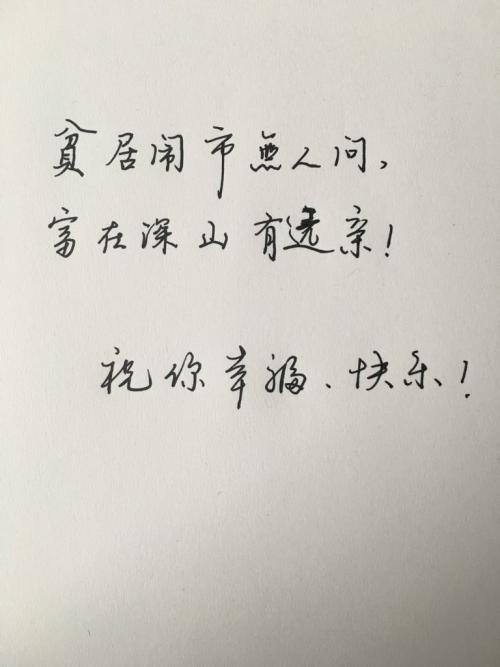 貧居闹市無人问，
富在深山有远亲！
祝你幸福、快乐！